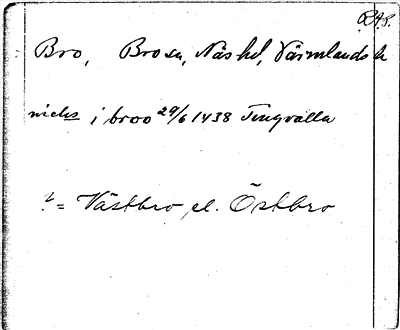 RAP.
Bro, Bro sn, Näs hd, Värmlands l
niclis i broo 29/6 1438 Tingvalla
? = Västbro el. Östbro